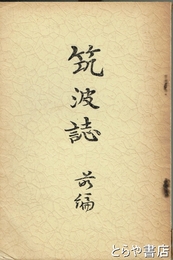 筑波誌
前編
© とらや書店